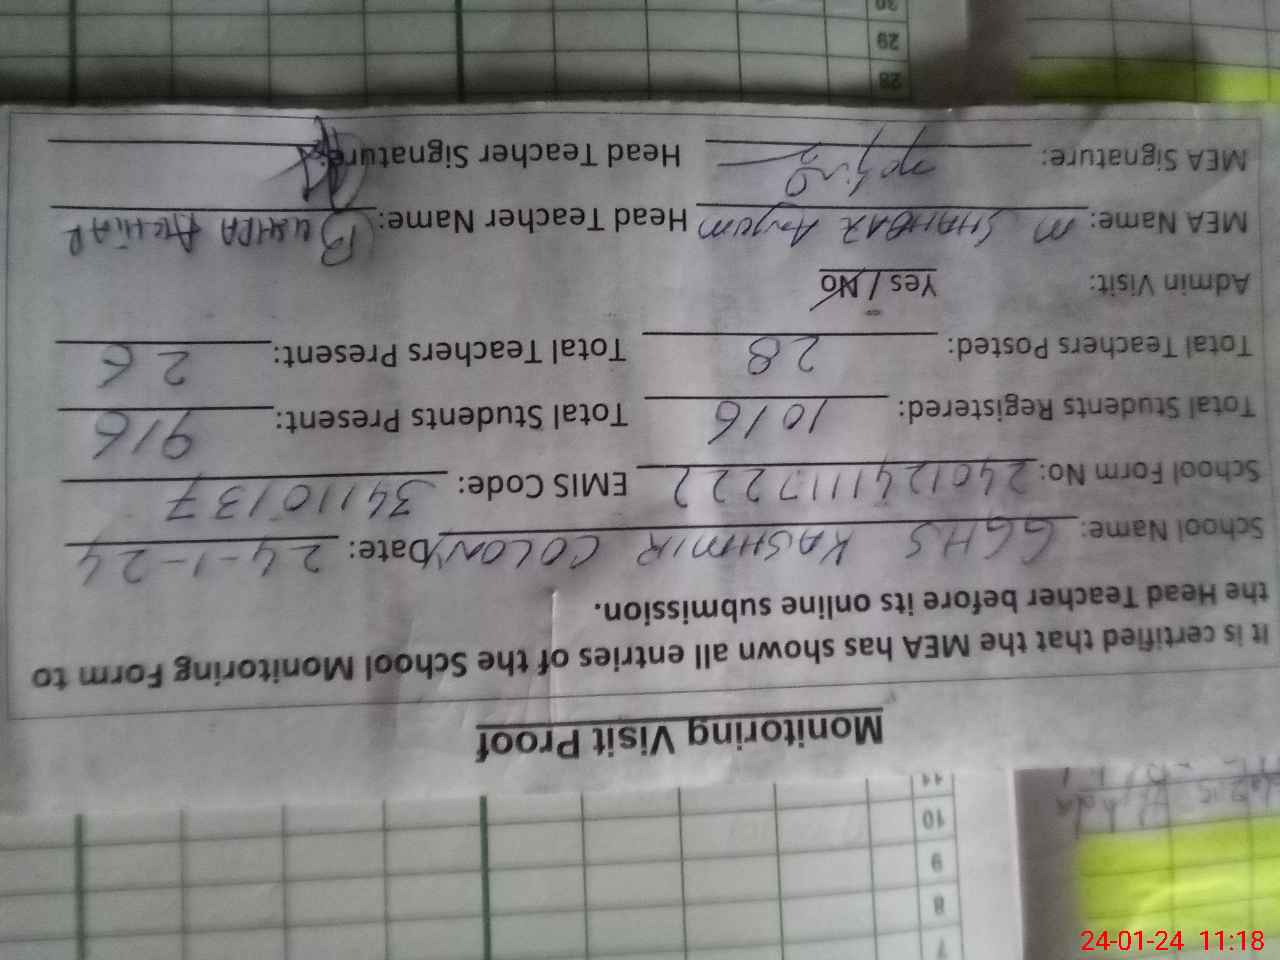 Monitoring Visit Proof
It is certified that the MEA has shown all entries of the School Monitoring Form to
the Head Teacher before its online submission.
School Name: GGHS KASHMIR COLONY Date: 24-1-24
School Form No: 2401241117222 EMIS Code: 34110137
Total Students Registered: 1016 Total Students Present: 916
Total Teachers Posted: 28 Total Teachers Present: 26
Admin Visit: Yes / No
MEA Name: M SHAHBAZ Anjum Head Teacher Name: BUSHRA
MEA Signature: Head Teacher Signature:
28
29
30
7
8
9
10
11
24-01-24 11:18